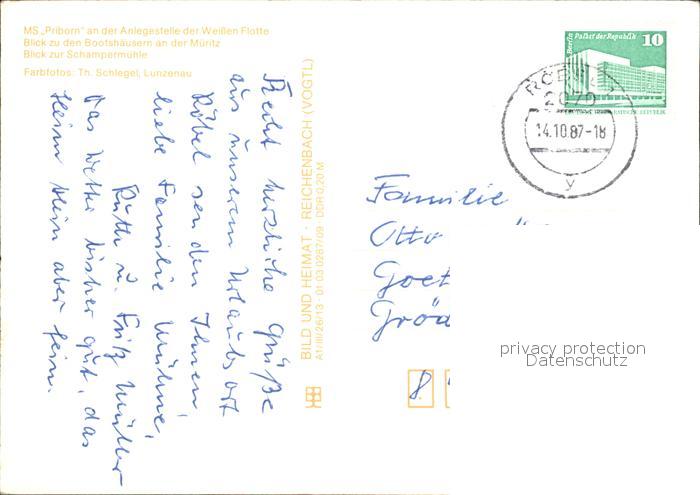 MS „Priborn" an der Anlegestelle der Weißen Flotte
Blick zu den Bootshäusern an der Müritz
Blick zur Schampermühle
Farbfotos: Th. Schlegel, Lunzenau
Recht herzliche Grüße
aus unserem Urlaubsort
Röbel senden Ihnen,
liebe Familie Mühne,
Ruth u. Fritz Müller
Das Wetter bisher gut, das
Heim klein aber fein.
BILD UND HEIMAT · REICHENBACH (VOGTL)
A1/III/26/13 · 01 03 0287/09 · DDR 0,20 M
Berlin Palast der Republik 10
2070
14.10.87-18
y
Familie
Otto
Goet
Gröd
8
privacy protection
Datenschutz